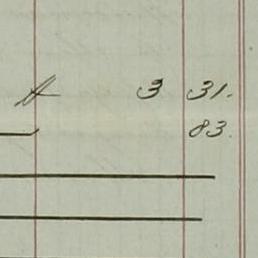 3 31.
83.